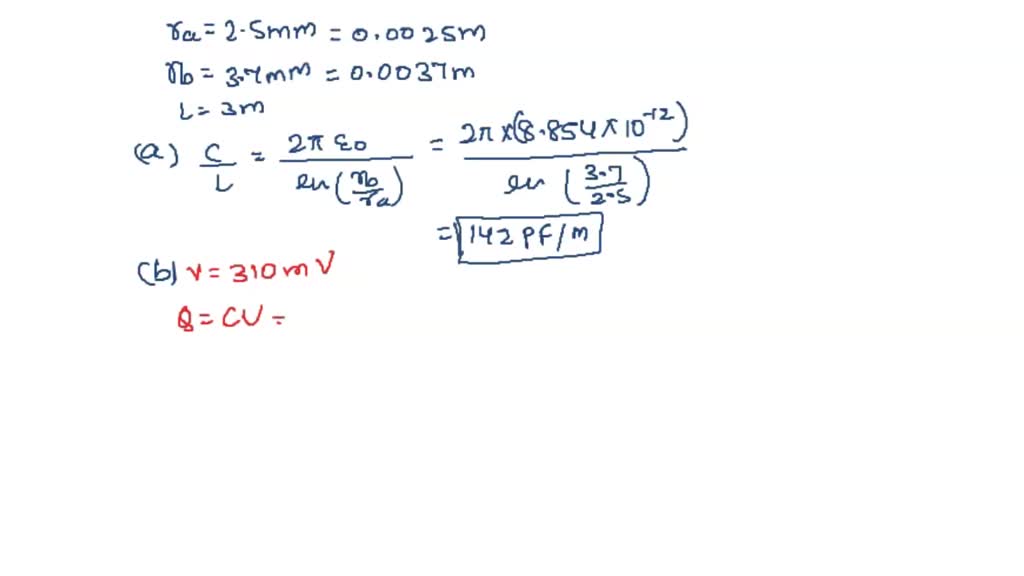 ra = 2.5mm = 0.0025m
rb = 3.7mm = 0.0037m
L = 3m
(a) C/L = 2π ε0 / ln(rb/ra) = 2π × (8.854 × 10^-12) / ln(3.7/2.5)
= 142 PF/m
(b) V = 310 mV
Q = CV =